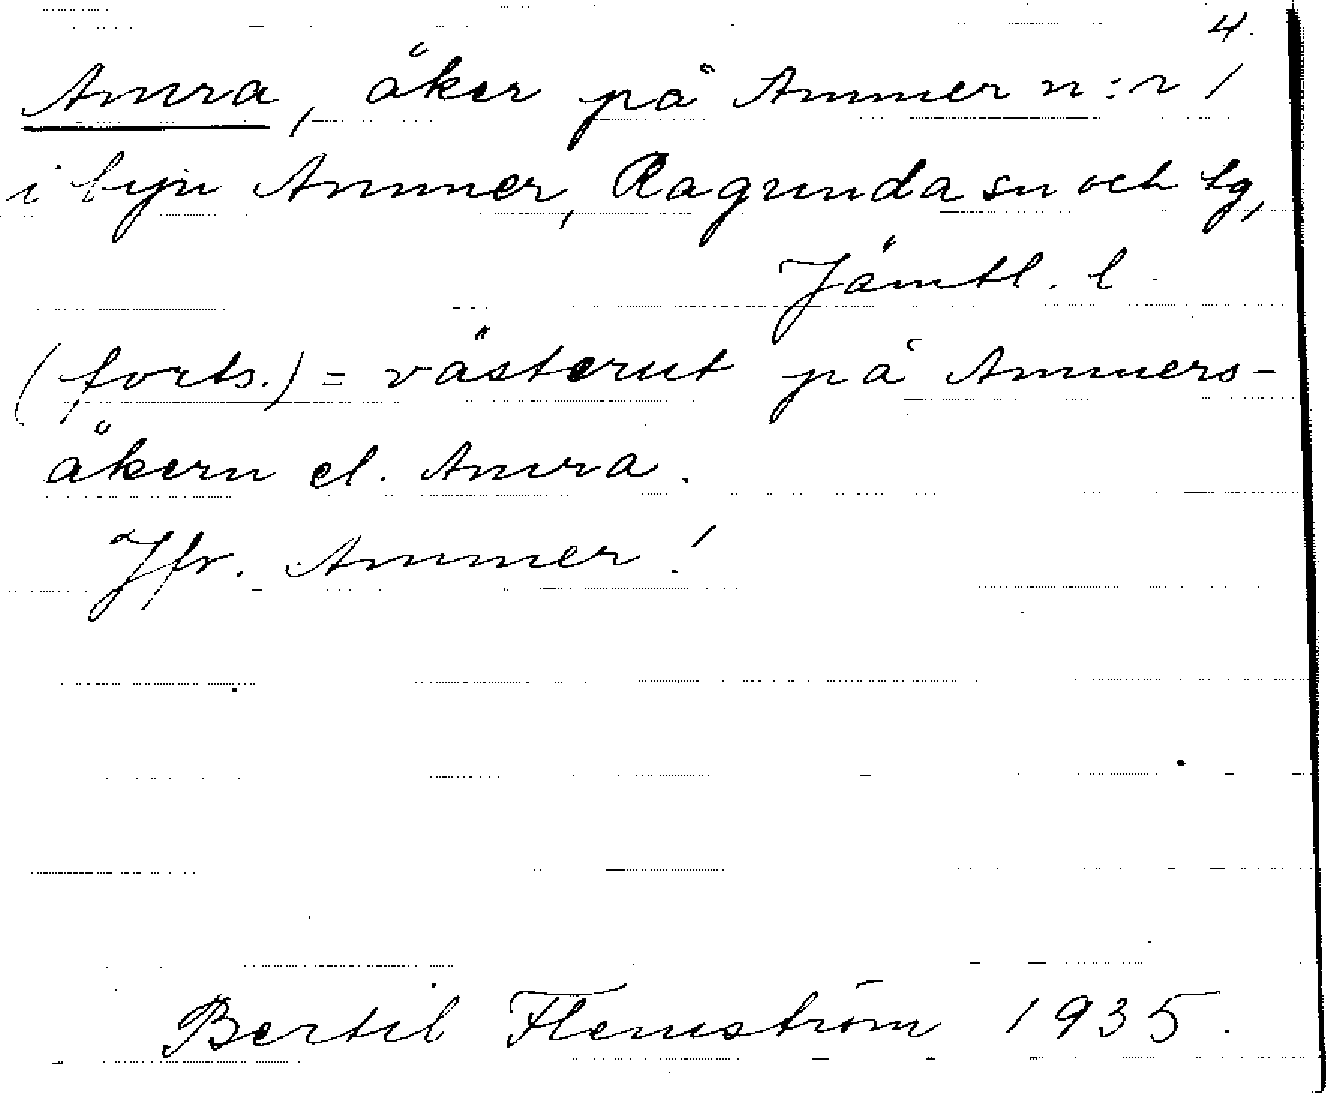 4.
Amra, åker på Ammer n:r 1
i byn Ammer, Ragunda sn och tg,
Jämtl. l.
(forts.) = västerut på Ammers-
åkern el. Amra.
Jfr. Ammer!
Bertil Flemström 1935.